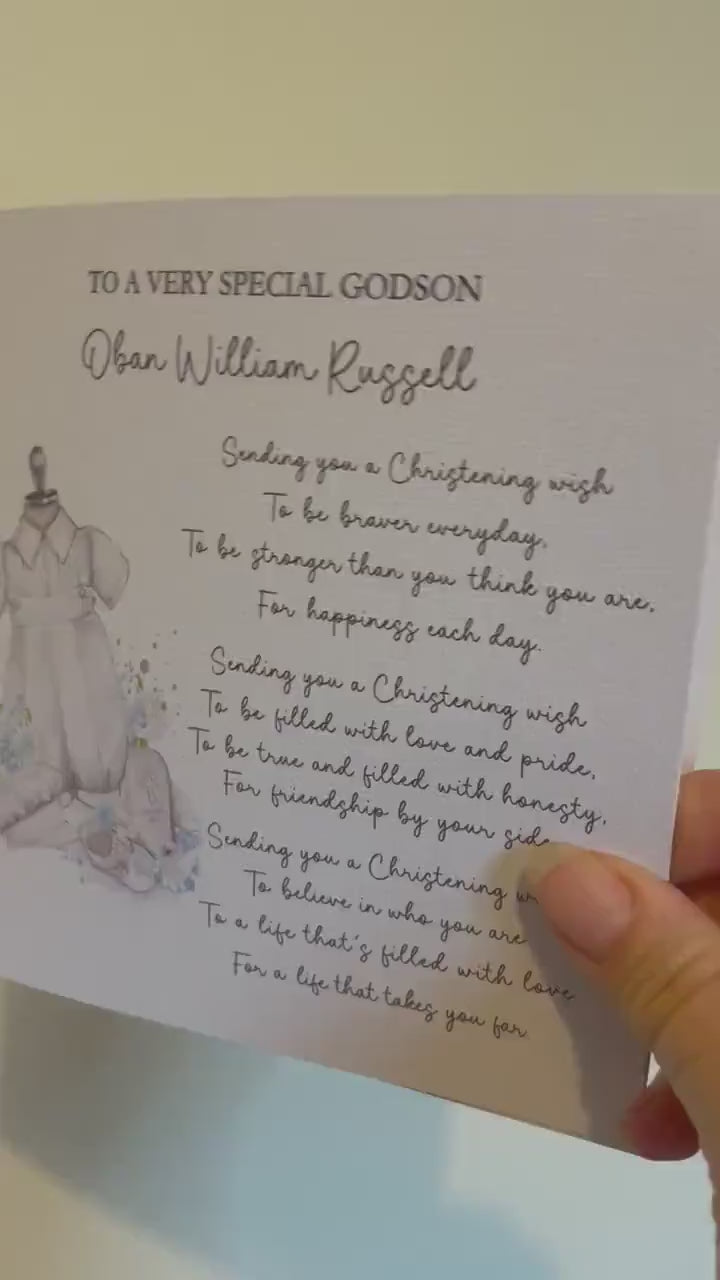 TO A VERY SPECIAL GODSON
Oban William Russell
Sending you a Christening wish
To be braver everyday,
To be stronger than you think you are,
For happiness each day.
Sending you a Christening wish
To be filled with love and pride,
To be true and filled with honesty,
For friendship by your side
Sending you a Christening
To believe in who you are
To a life that's filled with love
For a life that takes you far